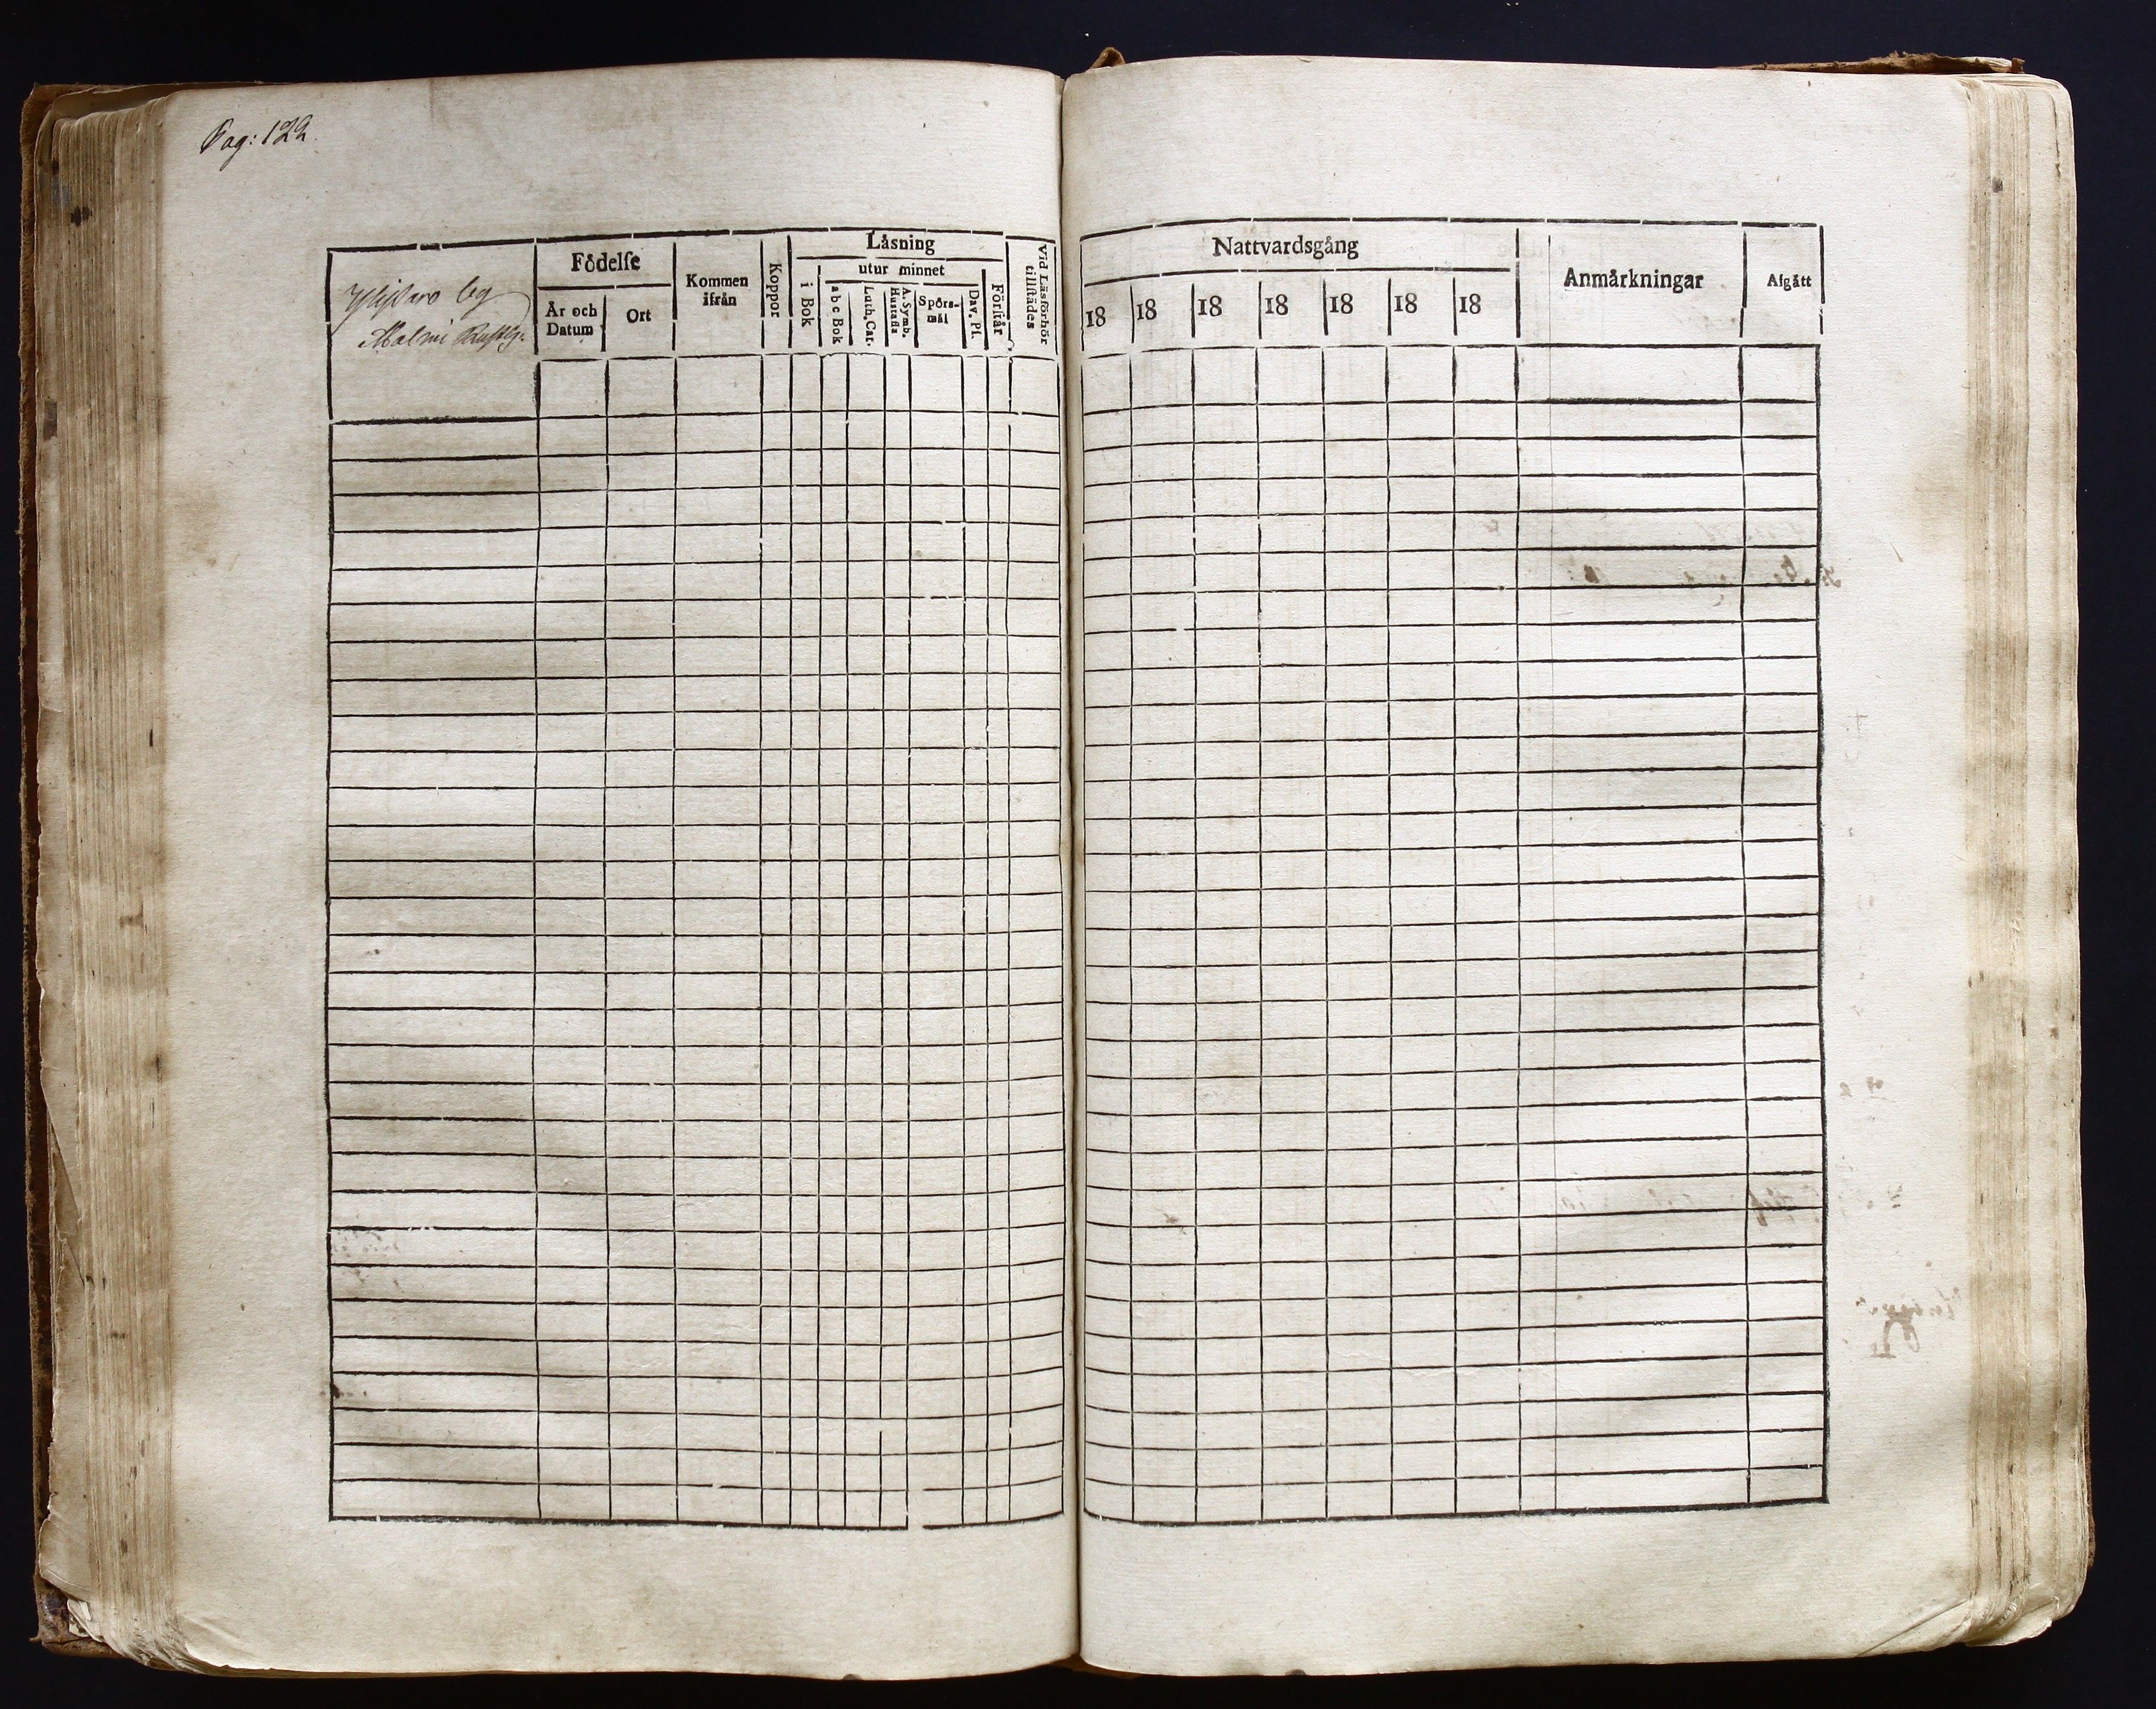 Pag: 122.
by
Malmi
Fôdelſe
År och Datum
Ort
Kommen ifrån
Koppor
Låsning
i Bok
utur minnet
a b c Bok
Luth. Cat.
A. Symb. Hustafla
Spörs-mål
Dav. Pſ.
Förſtår
Vid Läsförhör tillſtädes
Nattvardsgång
18 18 18 18 18 18 18
Anmårkningar
Afgått